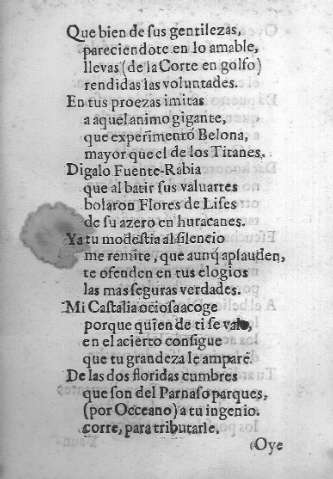 Que bien de sus gentilezas,
pareciendote en lo amable,
llevas (de la Corte en golfo)
rendidas las voluntades.
En tus proezas imitas
a aquel animo gigante,
que experimentò Belona,
mayor que el de los Titanes.
Digalo Fuente-Rabia
que al batir sus valuartes
bolaron Flores de Lises
de su azero en huracanes.
Ya tu modestia al silencio
me remite, que aunq̃ aplauden,
te ofenden en tus elogios
las mas seguras verdades.
Mi Castalia ociosa acoge
porque quien de ti se vale,
en el acierto consigue
que tu grandeza le ampare.
De las dos floridas cumbres
que son del Parnaso parques,
(por Occeano) a tu ingenio.
corre, para tributarle.
Oye